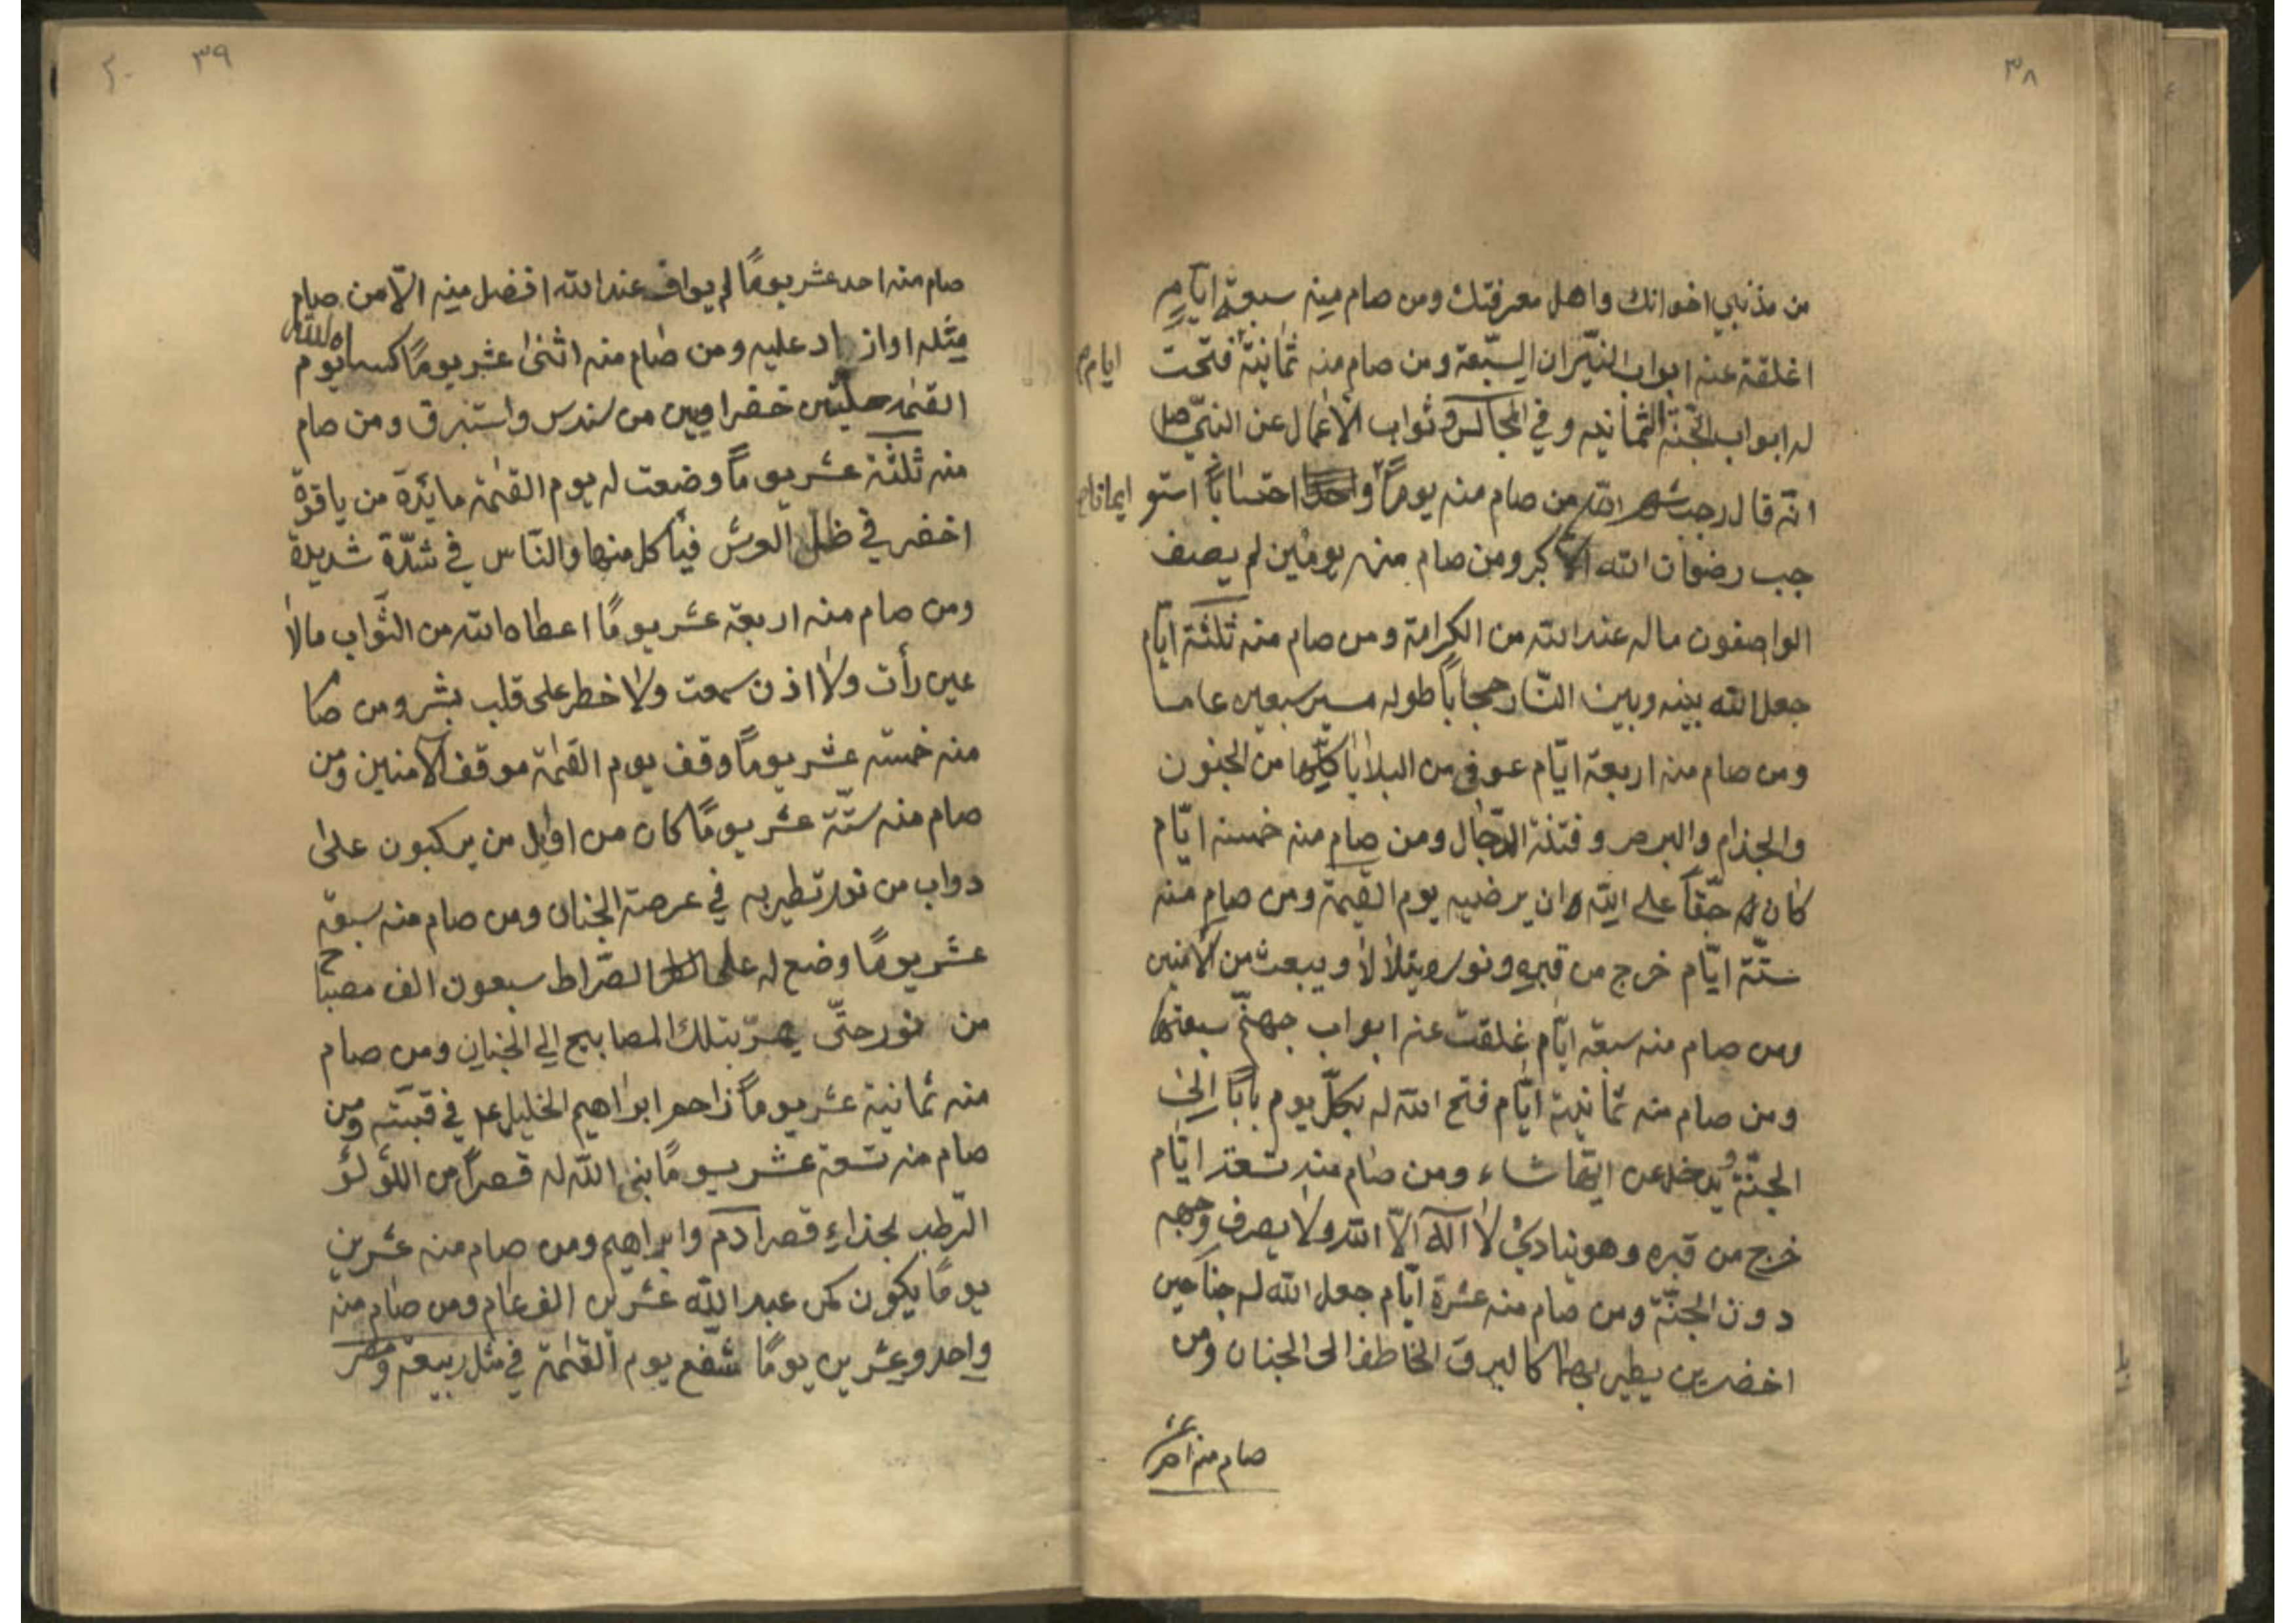 ٣٨
من مذنبي اخوانك واهل معرفتك ومن صام منه سبعة ايام
اغلقة عنه ابواب النيّران السّبعة ومن صام منه ثمانية فتحت
ايام
له ابواب الجنّة الثمانيه وفي المجالس وثواب الأعمال عن النبيّ ص
انّه قال رجب شهر الله من صام منه يوماً واحداً احتساباً استو
ايمانا
جب رضوان الله الاكبر ومن صام منه يومين لم يصف
الواصفون ماله عند الله من الكرامة ومن صام منه ثلثة ايّام
جعل الله بينه وبين النّار حجاباً طوله مسير سبعين عاما
ومن صام منه اربعة ايّام عوفى من البلايا كلّها من الجنون
والجذام والبرص وفتنة الدّجال ومن صام منه خمسة ايّام
كان حقّاً على الله ان يرضيه يوم القيمة ومن صام منه
ستّة ايّام خرج من قبره ونوره يتلألأ ويبعث من الآمنين
ومن صام منه سبعة ايّام غلقت عنه ابواب جهنّم سبعتها
ومن صام منه ثمانية ايّام فتح الله له بكلّ يوم باباً الى
الجنّة ويدخل من ايّها شاء ومن صام منه تسعة ايّام
خرج من قبره وهو ينادي لا اله الّا الله ولا يصرف وجهه
دون الجنّة ومن صام منه عشرة ايّام جعل الله له جناحين
اخضرين يطير بهما كالبرق الخاطف الى الجنان ومن
صام منه احد عشر
٣٩
صام منه احد عشر يوماً لم يواف عند الله افضل منه الّا من صام
مثله او ازاد عليه ومن صام منه اثنى عشر يوماً كساه الله يوم
القيمة حلّتين خضراوين من سندس واستبرق ومن صام
منه ثلثة عشر يوماً وضعت له يوم القيمة مائدة من ياقوة
اخضر في ظل العرش فيأكل منها والنّاس في شدّة شديدة
ومن صام منه اربعة عشر يوماً اعطاه الله من الثّواب مالا
عين رأت ولا اذن سمعت ولا خطر على قلب بشر ومن صا
منه خمسة عشر يوماً وقف يوم القيمة موقف الآمنين ومن
صام منه ستّة عشر يوماً كان من اوايل من يركبون على
دواب من نور تطير به في عرصة الجنان ومن صام منه سبعة
عشر يوماً وضع له على الصّراط سبعون الف مصباح
من نور حتّى يمرّ بتلك المصابيح الى الجنان ومن صام
منه ثمانية عشر يوماً زاحم ابراهيم الخليل ع في قبّته ومن
صام منه تسعة عشر يوماً بنى الله له قصراً من اللّؤلؤ
الرّطب بحذاء قصر ادم وابراهيم ومن صام منه عشرين
يوماً يكون كمن عبد الله عشرين الف عام ومن صام منه
واحد وعشرين يوماً شفّع يوم القيمة في مثل ربيعة ومضر